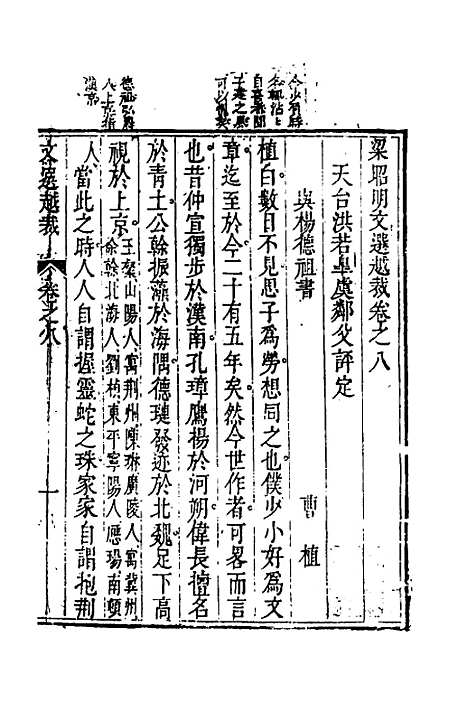 梁昭明文選越裁卷之八
天台洪若臯虞鄰父評定
與楊德祖書
曹植
植白數日不見思子爲勞想同之也僕少小好爲文
章迄至於今二十有五年矣然今世作者可畧而言
也昔仲宣獨步於漢南孔璋鷹揚於河朔偉長擅名
於青土公幹振藻於海隅德璉發迹於北魏足下高
視於上京王粲山陽人寓荆州陳琳廣陵人寓冀州
徐幹北海人劉楨東平寧陽人應瑒南頓
人
當此之時人人自謂握靈蛇之珠家家自謂抱荆
文選越裁
卷之八
一